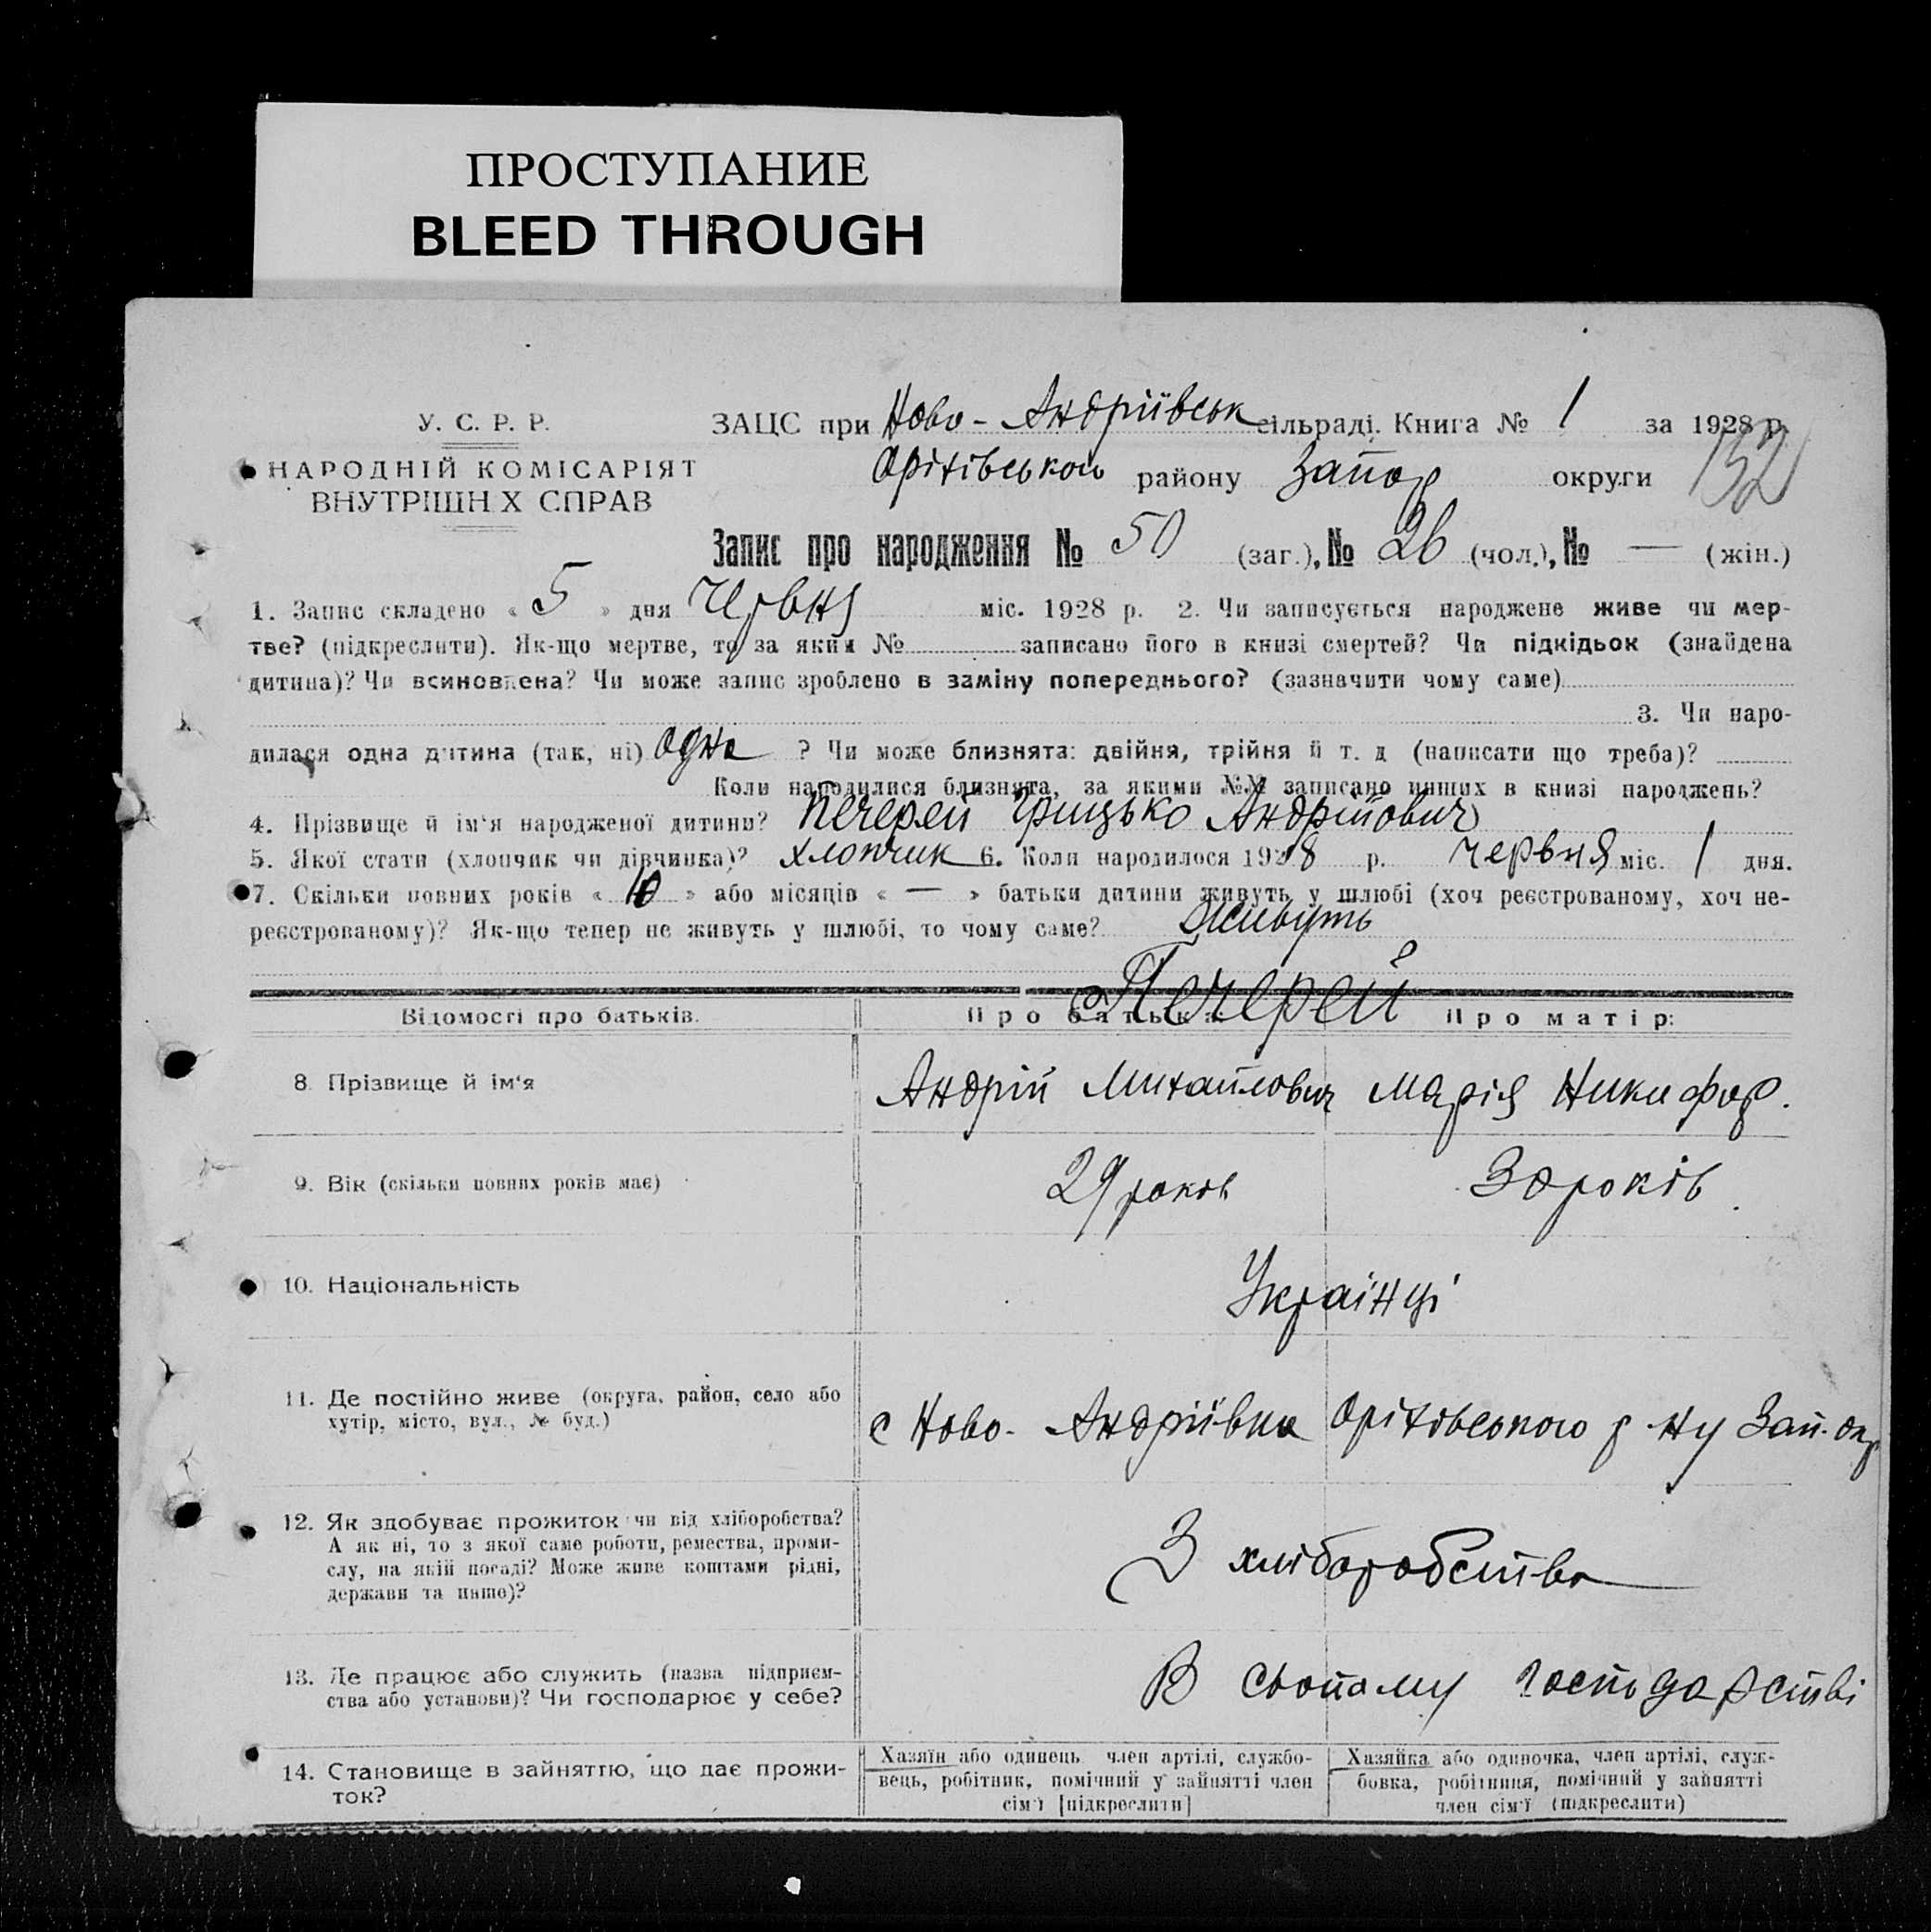 ПРОСТУПАНИЕ
BLEED THROUGH
У. С. Р. Р.
НАРОДНІЙ КОМІСАРІЯТ
ВНУТРІШН Х СПРАВ
ЗАЦС при Ново - Андріївськ сільраді. Книга № 1 за 1928 р.
Оріхівського району Запор округи 152
Запис про народження № 50 (заг.), № 26 (чол.), № — (жін.)
1. Запис складено « 5 » дня Червня міс. 1928 р. 2. Чи записується народжене живе чи мер-
тве? (підкреслити). Як-що мертве, то за яким № записано його в книзі смертей? Чи підкідьок (знайдена
дитина)? Чи всиновлена? Чи може запис зроблено в заміну попереднього? (зазначити чому саме)
3. Чи наро-
дилася одна дитина (так, ні) одна ? Чи може близнята: двійня, трійня й т. д (написати що треба)?
Коли народилися близнята, за якими №№ записано инших в книзі народжень?
4. Прізвище й ім'я народженої дитини? Печерей Грицько Андрійович
5. Якої стати (хлопчик чи дівчинка)? хлопчик 6. Коли народилося 1928 р. червня міс. 1 дня.
7. Скільки повних років « 10 » або місяців « — » батьки дитини живуть у шлюбі (хоч реєстрованому, хоч не-
реєстрованому)? Як-що тепер не живуть у шлюбі, то чому саме? живуть
Печерей
Відомості про батьків. Про батька: Про матір:
8. Прізвище й ім'я Андрій Михайлович Марія Никифор.
9. Вік (скільки повних років має) 29 років 30 років
10. Національність Українці
11. Де постійно живе (округа, район, село або
хутір, місто, вул., № буд.) с Ново - Андріївка Оріхівського р-ну Зап. окр
12. Як здобуває прожиток чи від хліборобства?
А як ні, то з якої саме роботи, ремества, проми-
слу, на якій посаді? Може живе коштами рідні,
держави та инше)? З хліборобства
13. Де працює або служить (назва підприєм-
ства або установи)? Чи господарює у себе? В своєму господарстві
14. Становище в зайняттю, що дає прожи-
ток?
Хазяїн або одинець член артілі, службо-
вець, робітник, помічний у зайнятті член
сім'ї [підкреслити]
Хазяйка або одиночка, член артілі, служ-
бовка, робітниця, помічний у зайнятті
член сім'ї (підкреслити)